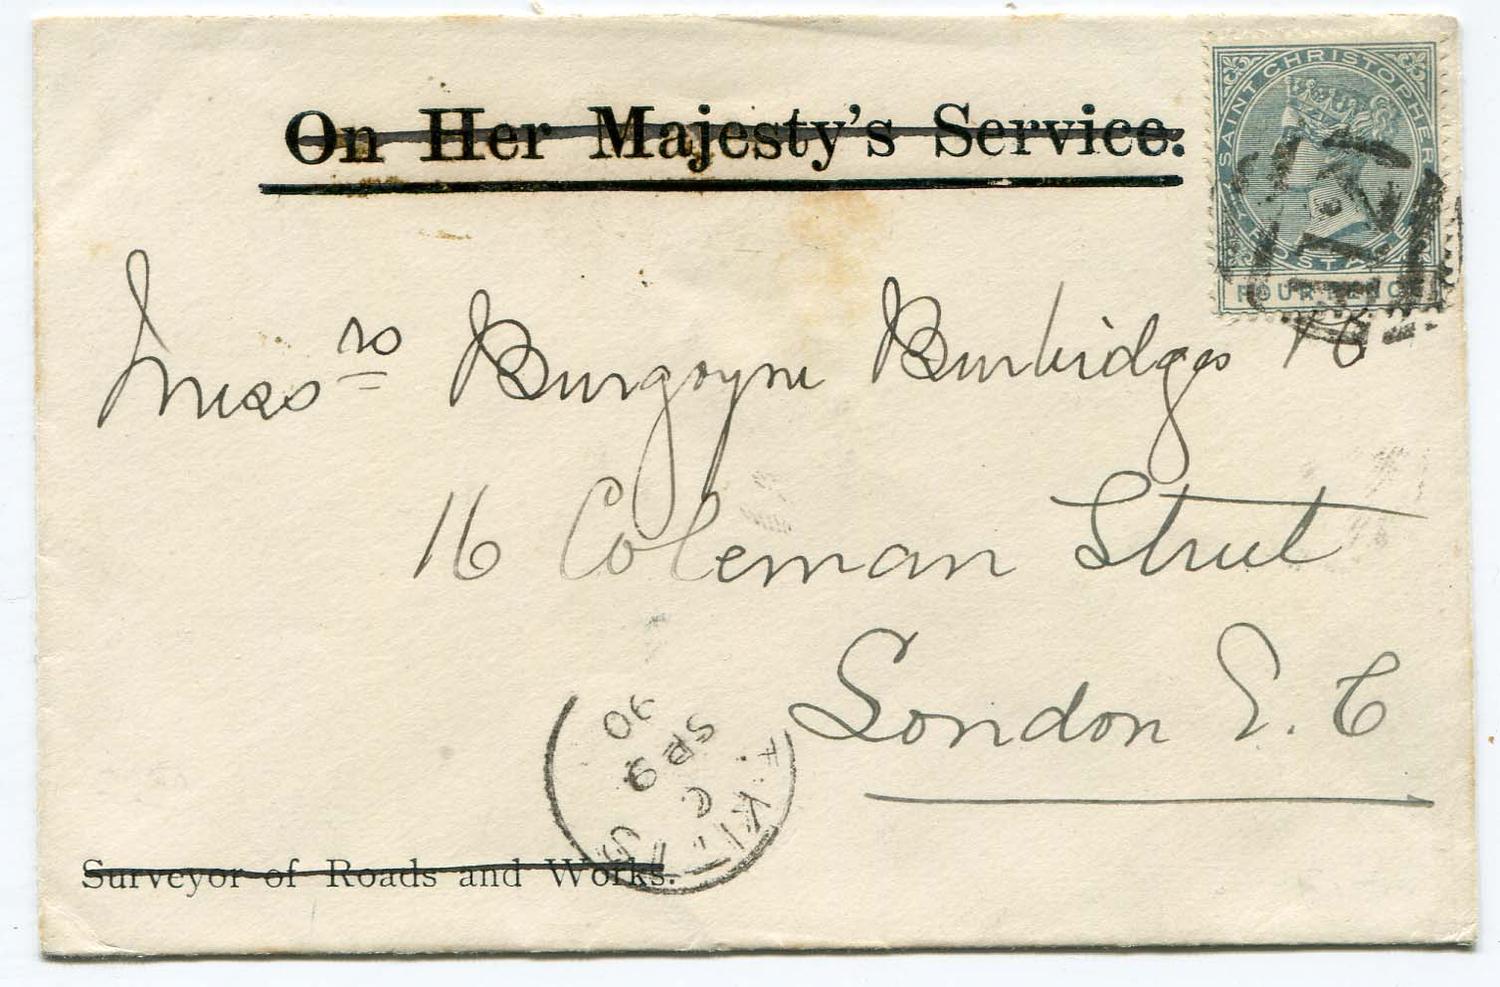 On Her Majesty's Service.
SAINT CHRISTOPHER
POSTAGE
FOUR PENCE
Mess rs Burgoyne Burbidges &C
16 Coleman Street
London E. C
A
ST. KITTS
C
SP 9
90
Surveyor of Roads and Works.